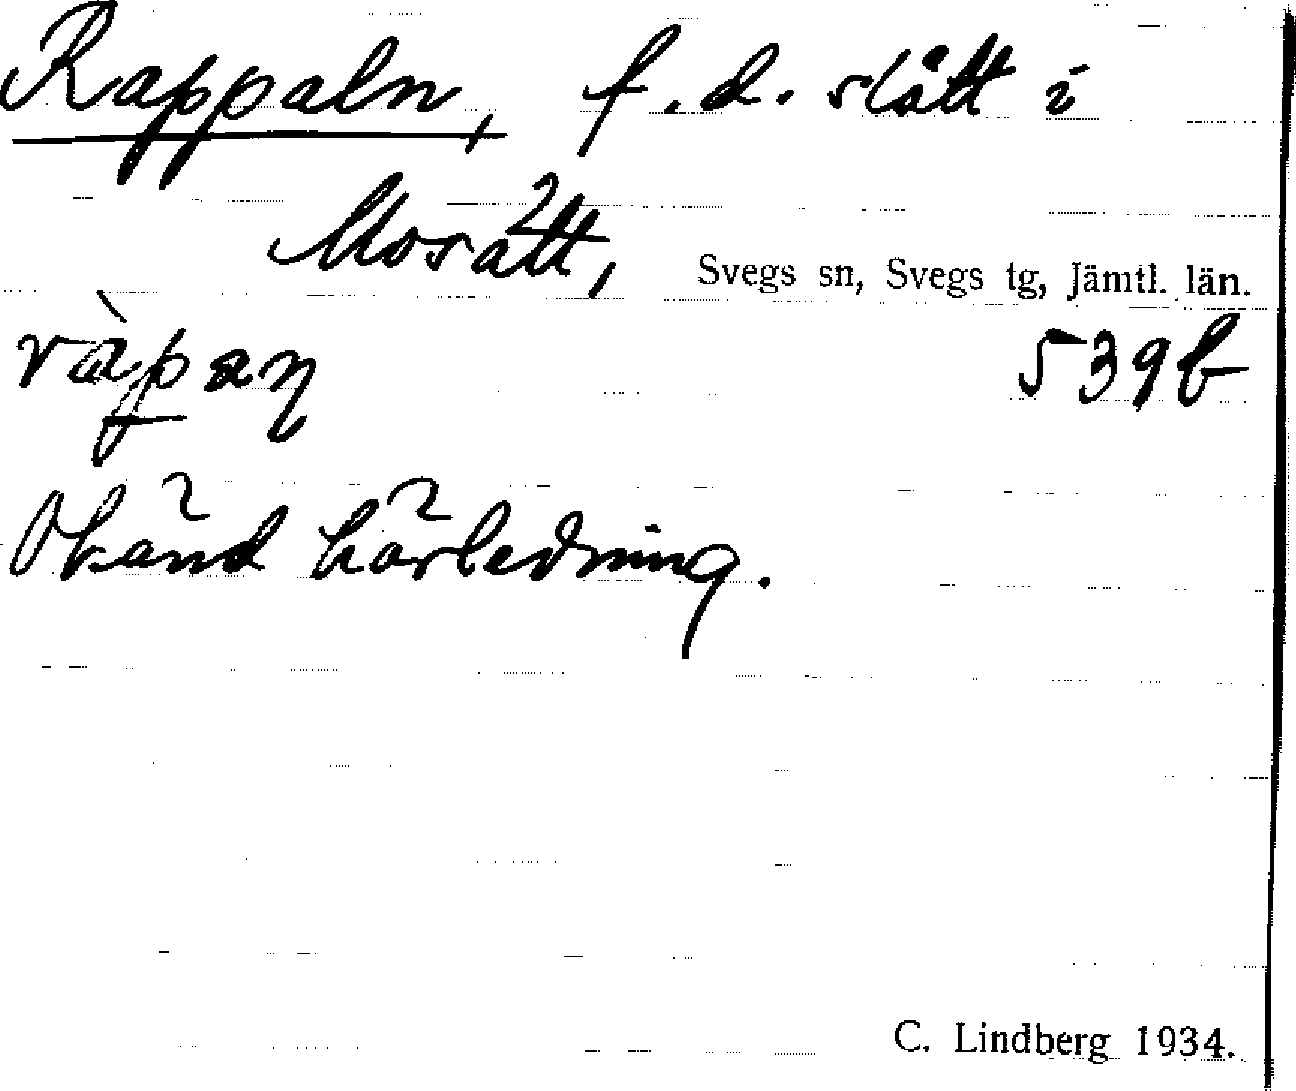 Rappaln, f. d. slått i
Morätt, Svegs sn, Svegs tg, Jämtl. län.
539b
Okänd härledning.
C. Lindberg 1934.